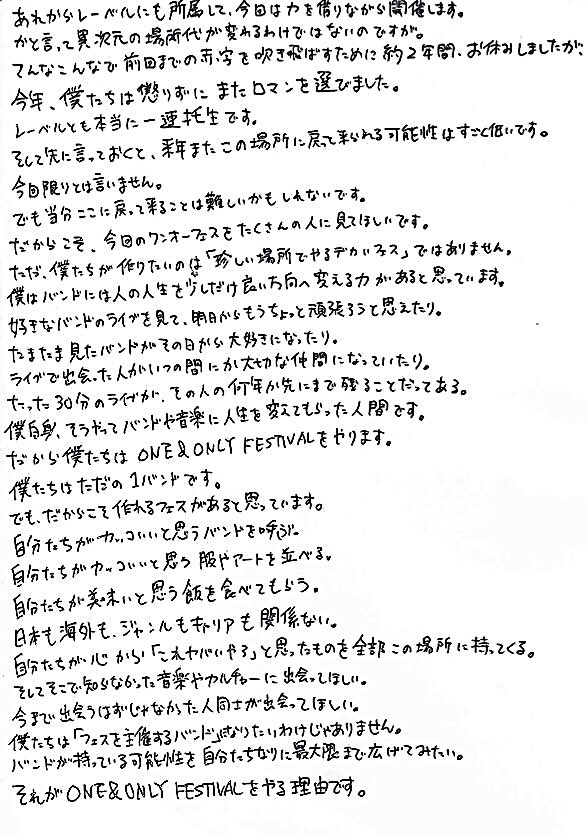 あれからレーベルにも所属して、今回は力を借りながら開催します。
かと言って異次元の場所代が変わるわけではないのですが。
てんなこんなで前回までの赤字を吹き飛ばすために約2年間、お休みしましたが、
今年、僕たちは懲りずにまたロマンを選びました。
レーベルとも本当に一蓮托生です。
そして先に言っておくと、来年またこの場所に戻って来られる可能性はすごく低いです。
今回限りとは言いません。
でも当分ここに戻って来ることは難しいかもしれないです。
だからこそ、今回のワンオーフェスをたくさんの人に見てほしいです。
ただ、僕たちが作りたいのは「珍しい場所でやるデカいフェス」ではありません。
僕はバンドには人の人生を少しだけ良い方向へ変える力があると思っています。
好きなバンドのライブを見て、明日からもうちょっと頑張ろうと思えたり。
たまたま見たバンドがその日から大好きになったり。
ライブで出会った人がいつの間にか大切な仲間になっていたり。
たった30分のライブが、その人の何年か先にまで残ることだってある。
僕自身、そうやってバンドや音楽に人生を変えてもらった人間です。
だから僕たちは ONE&ONLY FESTIVALをやります。
僕たちはただの1バンドです。
でも、だからこそ作れるフェスがあると思っています。
自分たちがカッコいいと思うバンドを呼ぶ。
自分たちがカッコいいと思う服やアートを並べる。
自分たちが美味いと思う飯を食べてもらう。
日本も海外も、ジャンルもキャリアも関係ない。
自分たちが心から「これヤバいやろ」と思ったものを全部この場所に持ってくる。
そしてそこで知らなかった音楽やカルチャーに出会ってほしい。
今まで出会うはずじゃなかった人同士が出会ってほしい。
僕たちは「フェスを主催するバンド」になりたいわけじゃありません。
バンドが持っている可能性を自分たちなりに最大限まで広げてみたい。
それがONE&ONLY FESTIVALをやる理由です。